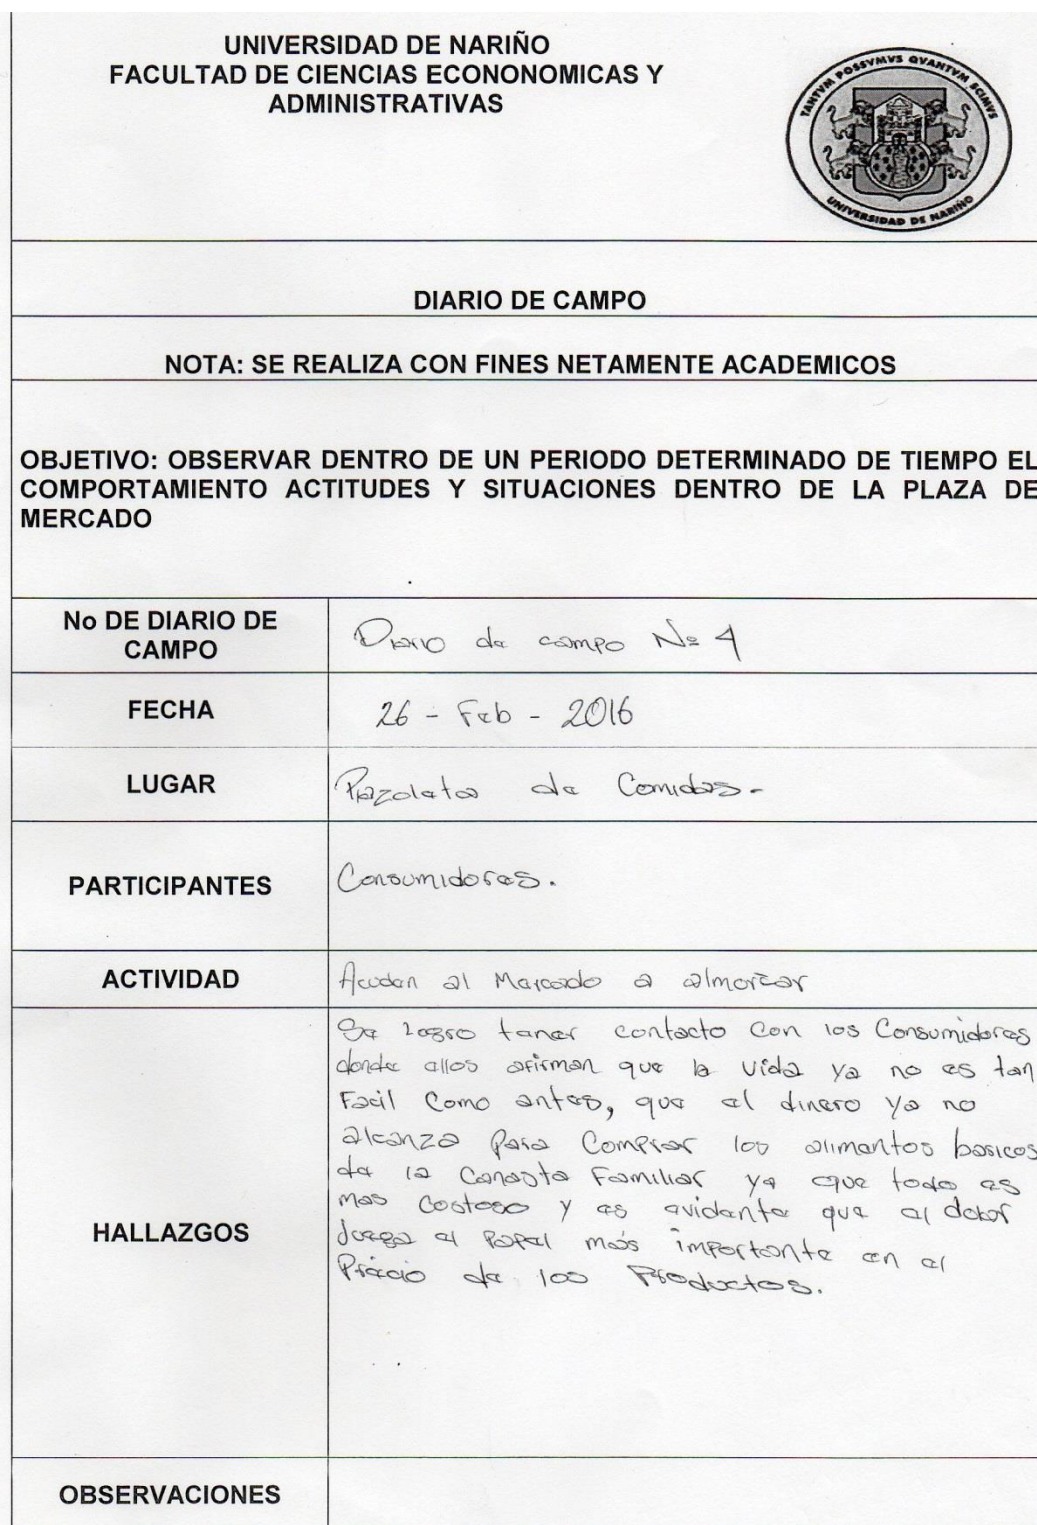 UNIVERSIDAD DE NARIÑO
FACULTAD DE CIENCIAS ECONONOMICAS Y
ADMINISTRATIVAS
TANTVM POSSVMVS QVANTVM SCIMVS
UNIVERSIDAD DE NARIÑO
DIARIO DE CAMPO
NOTA: SE REALIZA CON FINES NETAMENTE ACADEMICOS
OBJETIVO: OBSERVAR DENTRO DE UN PERIODO DETERMINADO DE TIEMPO EL
COMPORTAMIENTO ACTITUDES Y SITUACIONES DENTRO DE LA PLAZA DE
MERCADO
No DE DIARIO DE
CAMPO
Diario de campo Nº 4
FECHA
26 - Feb - 2016
LUGAR
Plazoleta de Comidas.
PARTICIPANTES
Consumidores.
ACTIVIDAD
Acuden al Mercado a almorzar
HALLAZGOS
Se logro tener contacto con los Consumidores
donde ellos afirman que la vida ya no es tan
Facil Como antes, que el dinero ya no
alcanza Para Comprar los alimentos basicos
de la Canasta Familiar ya que todo es
mas Costoso y es evidente que el dolar
Juega el Papel más importante en el
Precio de los Productos.
OBSERVACIONES